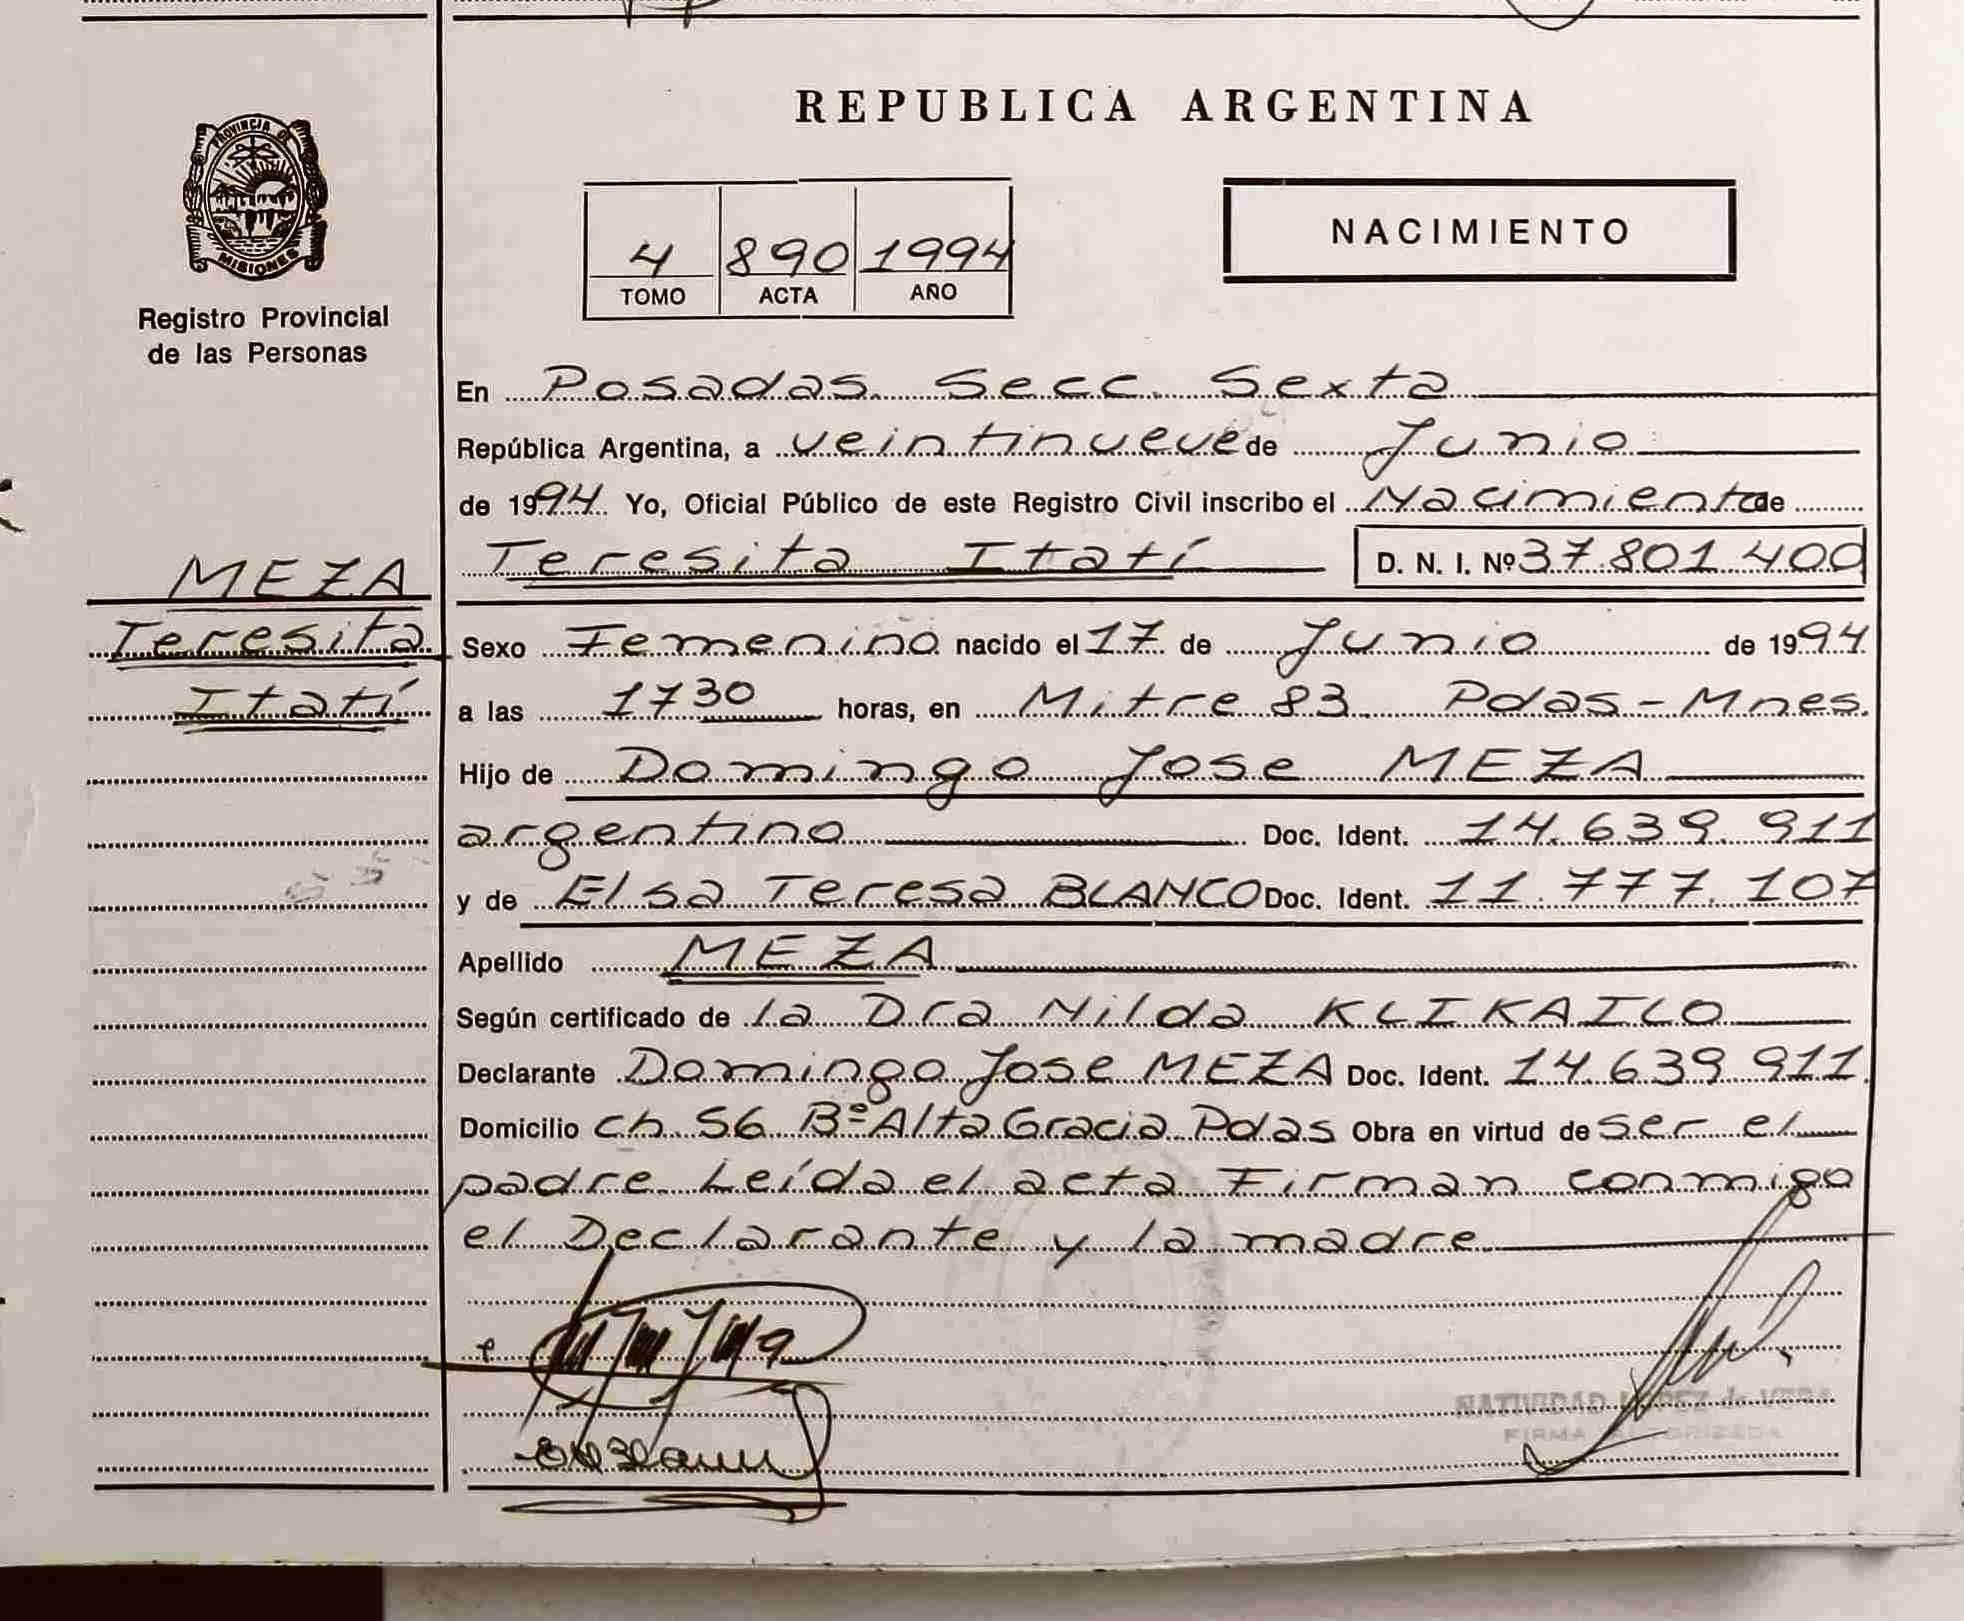 REPUBLICA ARGENTINA
PROVINCIA DE
MISIONES
Registro Provincial
de las Personas
4 890 1994
TOMO ACTA AÑO
NACIMIENTO
En Posadas Secc. Sexta
República Argentina, a veintinueve de Junio
de 1994 Yo, Oficial Público de este Registro Civil inscribo el Nacimiento de
Teresita Itatí D. N. I. Nº 37.801.400
MEZA
Teresita
Itatí
Sexo Femenino nacido el 17 de Junio de 1994
a las 17 30 horas, en Mitre 83 Pdas - Mnes.
Hijo de Domingo Jose MEZA
argentino Doc. Ident. 14.639.911
y de Elsa Teresa BLANCO Doc. Ident. 11.777.107
Apellido MEZA
Según certificado de la Dra Nilda KLIKAILO
Declarante Domingo Jose MEZA Doc. Ident. 14.639.911
Domicilio Ch 56 Bº Alta Gracia Pdas Obra en virtud de ser el
padre Leída el acta Firman conmigo
el Declarante y la madre
NATIVIDAD LOPEZ de VERA
FIRMA AUTORIZADA